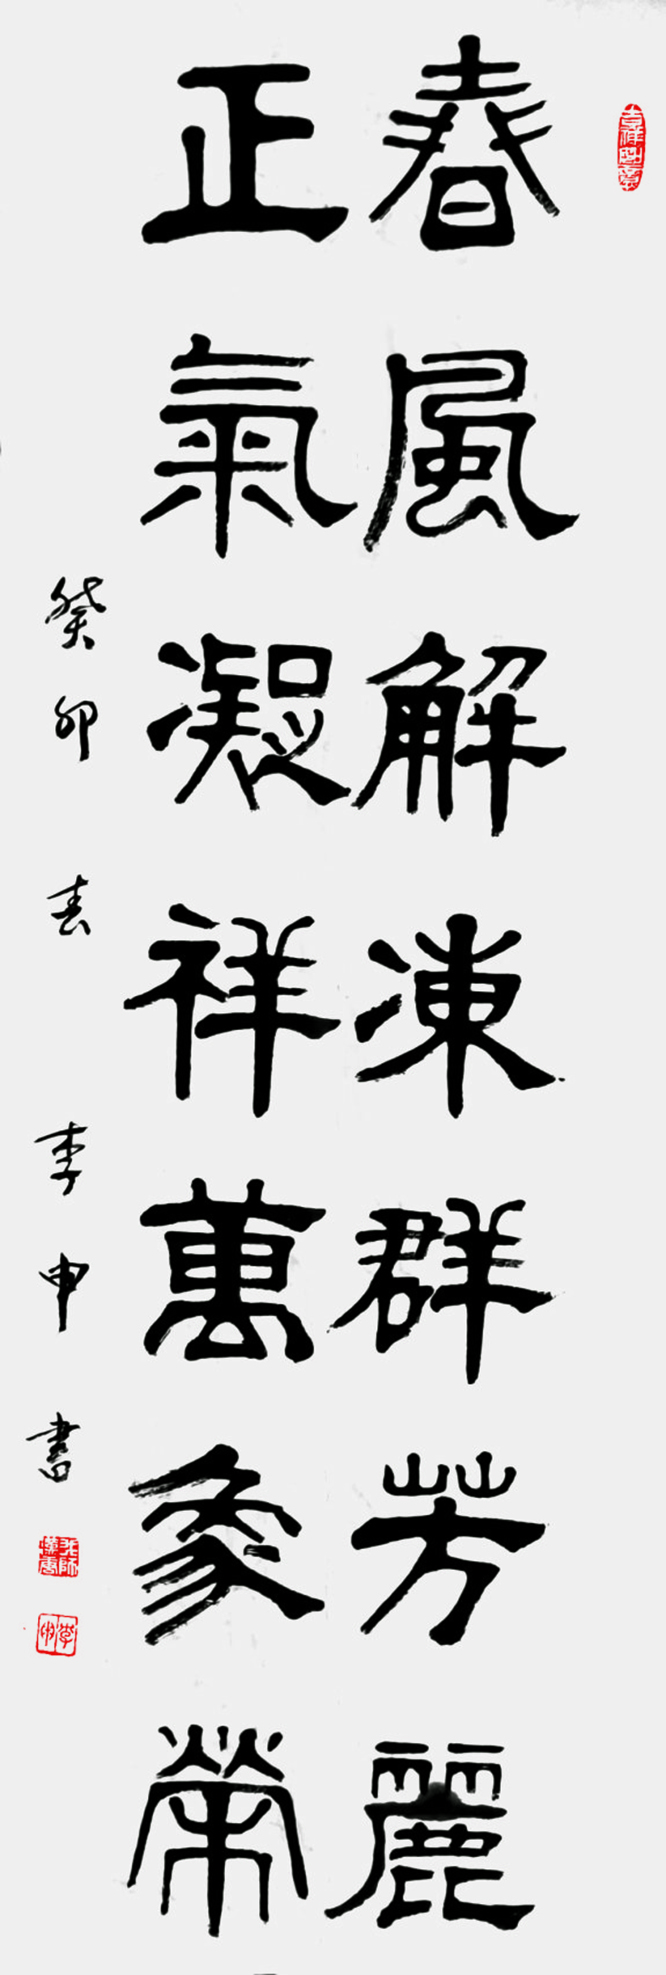 春風解凍群芳麗
正氣凝祥萬象榮
癸卯春李申書